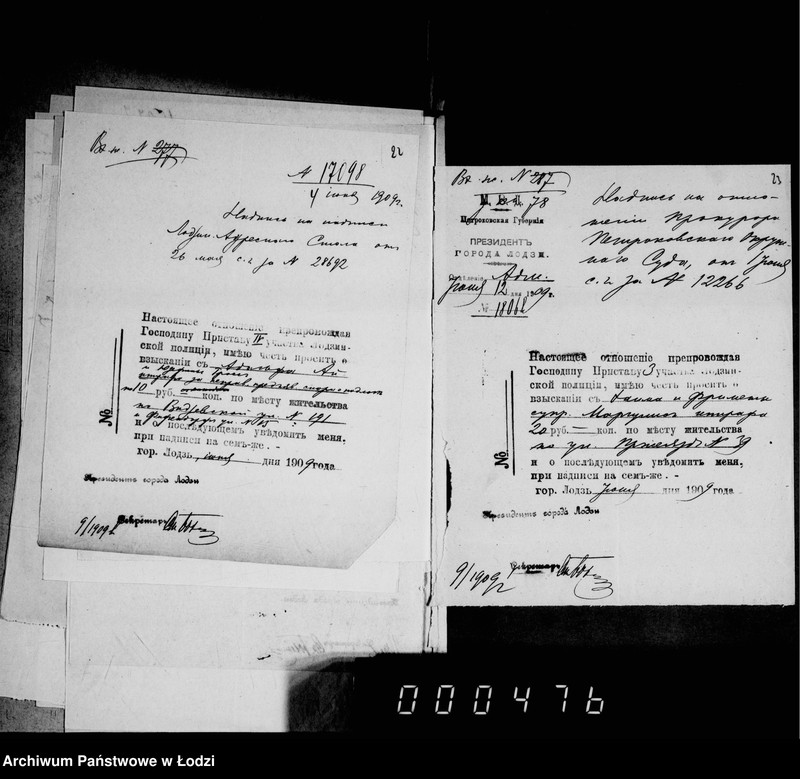 Вх. н. N 277
22
N 17098
4 июня 1909 г.
Надпись на надписи
Лодзин. Адреснаго Стола от
26 мая с. г. за N 28692
Настоящее отношеніе препровождая
Господину Приставу IV участка Лодзин-
ской полиціи, имѣю честь просить о
взысканіи съ
10 руб. коп. по мѣсту жительства
по Видзевской ул. N 191
и о послѣдующемъ увѣдомить меня,
при надписи на семъ-же.
гор. Лодзь, июня дня 1909 года
№
Президентъ города Лодзи
Секретарь
9/1909 г.
Вх. н. N 287
23
М. В. Д.
78
Петроковская Губернія
ПРЕЗИДЕНТЪ
ГОРОДА ЛОДЗИ.
Отдѣленіе Адм.
Июня 12 дня 1909 г.
№ 18068
Надпись на отно-
шении Прокурора
Петроковскаго Окруж-
наго Суда, от 1 Июня
с. г. за N 12266
Настоящее отношеніе препровождая
Господину Приставу 3 участка Лодзин-
ской полиціи, имѣю честь просить о
взысканіи съ
супр. Моргулис штрафа
20 руб. — коп. по мѣсту жительства
по ул. N 39
и о послѣдующемъ увѣдомить меня,
при надписи на семъ-же. -
гор. Лодзь Июня дня 1909 года
№
Президентъ города Лодзи
Секретарь
9/1909 г.
000476
Archiwum Państwowe w Łodzi